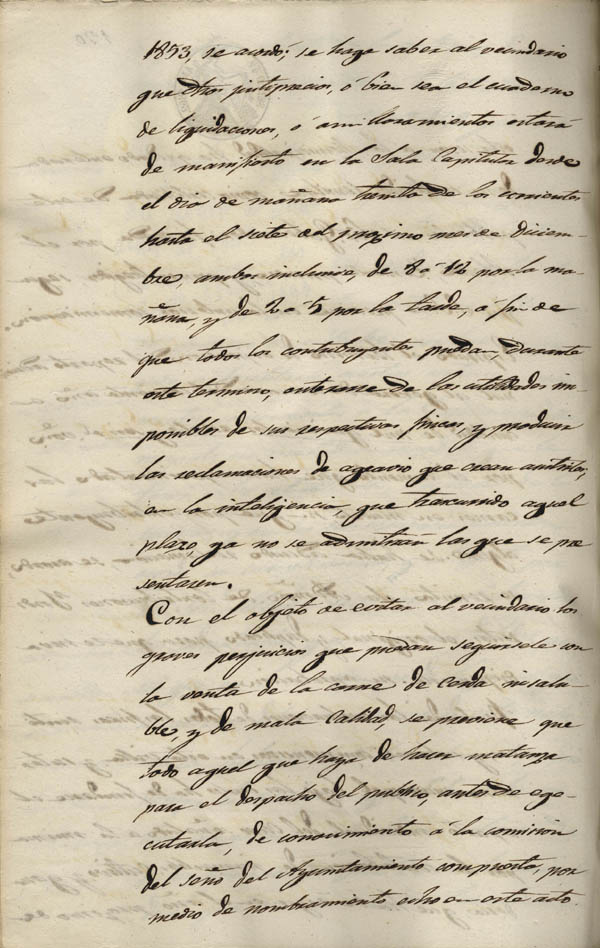 1853, se acordó; se haga saber al vecindario
que dhos justiprecios, ó bien sea el cuaderno
de liquidaciones, ó amillaramientos estará
de manifiesto en la Sala Capitular desde
el dia de mañana treinta de los corrientes
hasta el siete del proximo mes de Diciem-
bre, ambos inclusive, de 8 á 12 por la ma-
ñana, y de 2 a 5 por la tarde, á fin de
que todos los contribuyentes puedan, durante
este termino, enterarse de las utilidades im-
ponibles de sus respectivas fincas, y producir
las reclamaciones de agravio que crean
en la inteligencia, que trascurrido aquel
plazo, ya no se admitirán las que se pre
sentaren.
Con el objeto de evitar al vecindario los
graves perjuicios que puedan seguirsele con
la venta de la carne de Cerda insalu-
ble, y de mala Calidad, se previene que
todo aquel que haya de hacer matanza
para el despacho del publico, antes de ege-
cutarla, de conocimiento á la comision
del seno del Ayuntamiento compuesta, por
medio de nombramiento echo en este acto